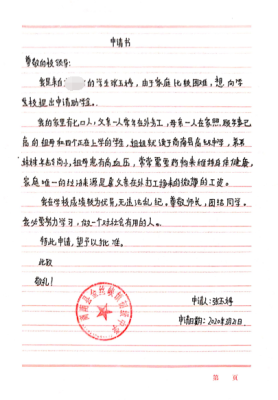 申请书
尊敬的校领导：
我是来自 的学生张玉婷，由于家庭比较困难，想向学
校提出申请助学金。
我的家里有七口人，父亲一人常年在外务工，母亲一人在家照顾年事已
高的祖母和四个正在上学的学生，姐姐就读于商南县高级中学，弟弟
妹妹年幼，祖母患有高血压，常常需要药物来维持身体健康，
家庭唯一的经济来源是靠父亲在外打工挣来的微薄的工资。
我在学校成绩较为优异，无违法乱纪。尊敬师长，团结同学。
我必誓努力学习，做一个对社会有用的人。
特此申请，望予以批准。
此致
敬礼！
申请人：张玉婷
申请日期：2020年3月21日
第 页